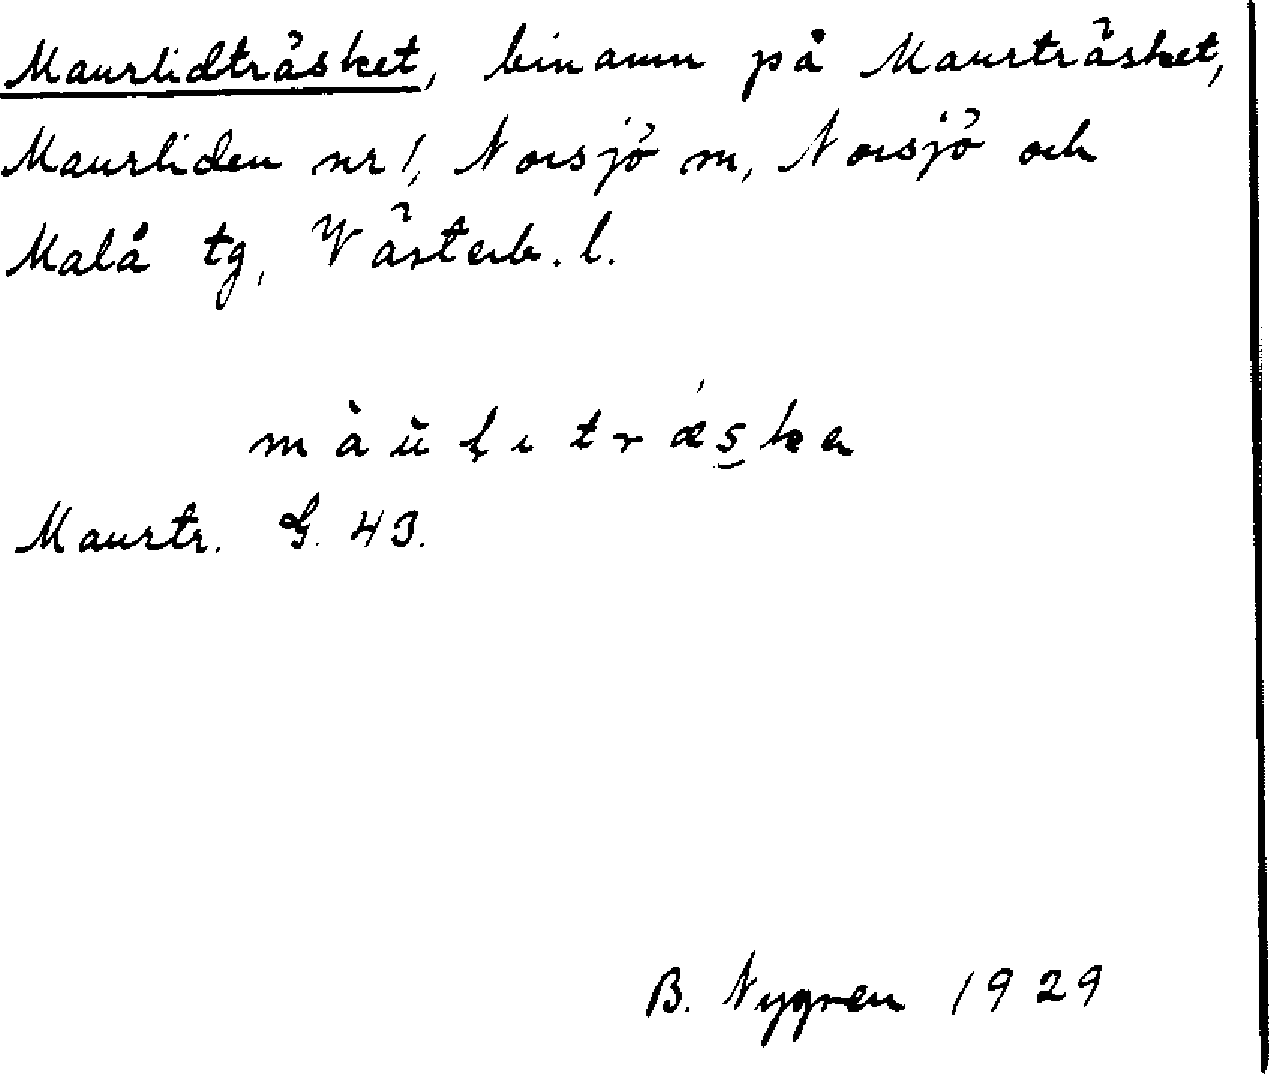 Maurlidträsket, binamn på Maurträsket,
Maurliden nr 1, Norsjö sn, Norsjö och
Malå tg, Västerb. l.
Maurtr. G. 43.
B. Nygren 1929